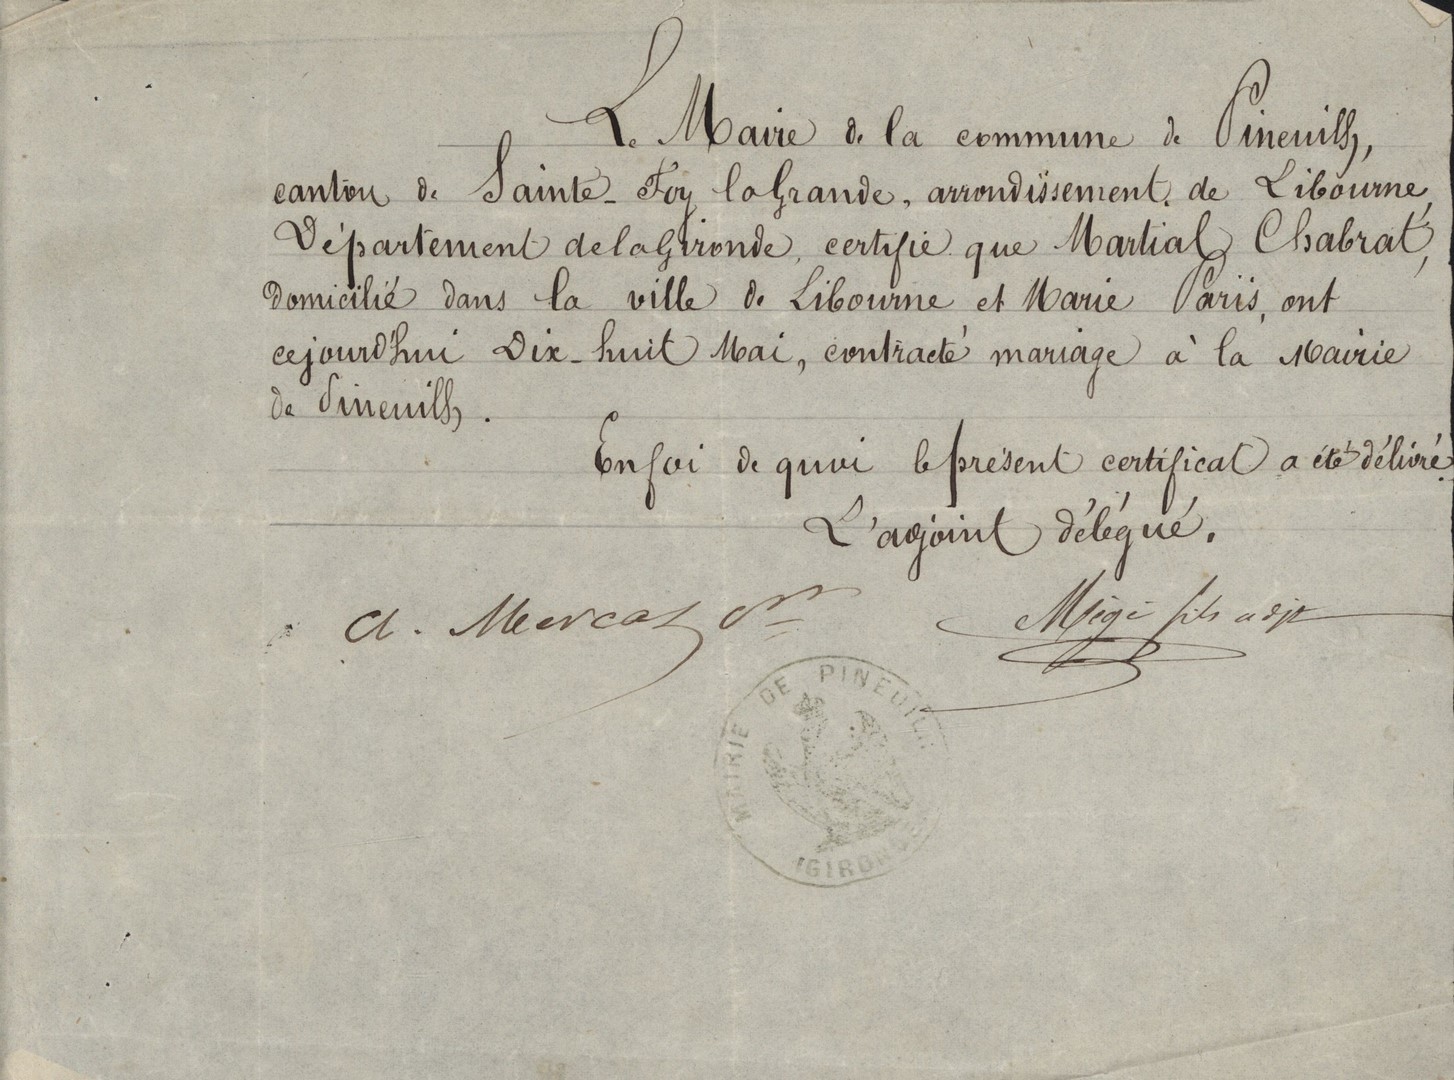 Le Maire de la commune de Pineuilh,
canton de Sainte-Foy la Grande, arrondissement de Libourne,
Département de la Gironde, certifie que Martial Chabrat,
domicilié dans la ville de Libourne et Marie Paris, ont
cejourd'hui Dix-huit Mai, contracté mariage à la Mairie
de Pineuilh.
En foi de quoi le présent certificat a été délivré.
L'adjoint délégué.
A. Mercat
fils adjt
MAIRIE DE PINEUILH
(GIRONDE)